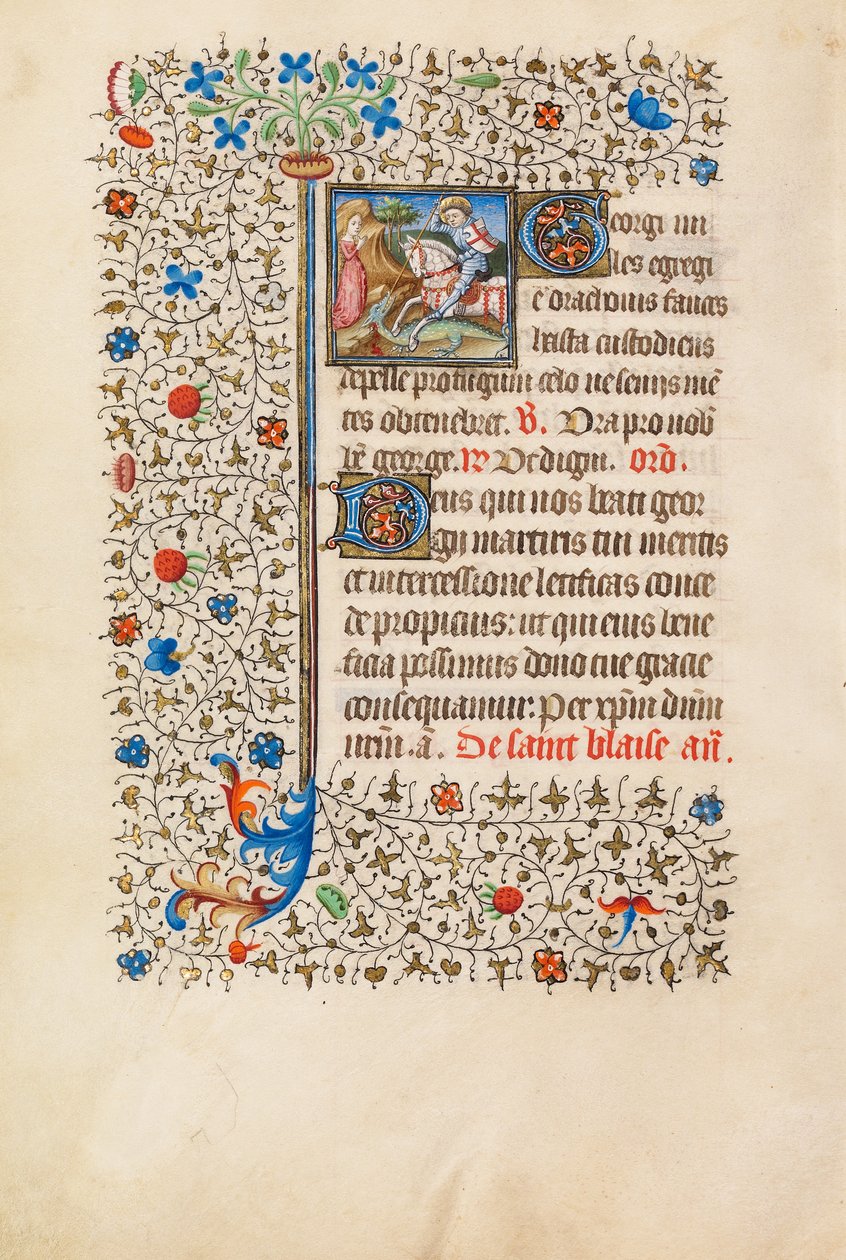 Georgi mi
les egregi
e oracionis fauces
hasta custodiens
depelle profugum celo ne sensus mē
tes obtenebret. V. Ora pro nob
be george. R Ut digni. orō.
Deus qui nos beati geor
gij martiris tui meritis
et intercessione letificas conce
de propicius: ut qui eius bene
ficia possimus dono tue gracie
consequamur: Per xpm dnm
nrm. a. De saint blaise añ.